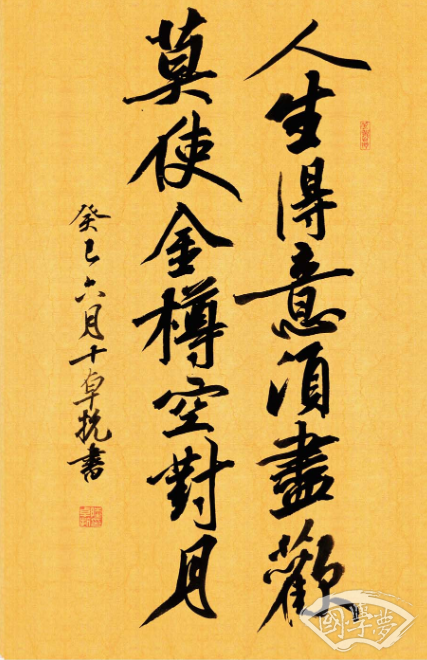 人生得意須盡歡
莫使金樽空對月
癸巳六月十卓書
國學夢